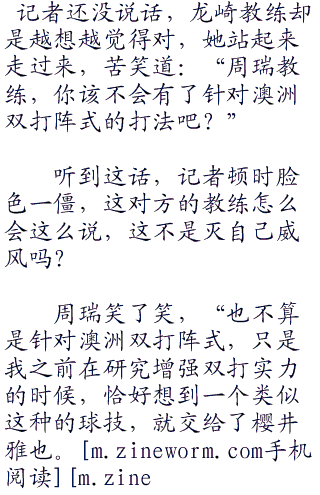 记者还没说话，龙崎教练却
是越想越觉得对，她站起来
走过来，苦笑道：“周瑞教
练，你该不会有了针对澳洲
双打阵式的打法吧？”
听到这话，记者顿时脸
色一僵，这对方的教练怎么
会这么说，这不是灭自己威
风吗？
周瑞笑了笑，“也不算
是针对澳洲双打阵式，只是
我之前在研究增强双打实力
的时候，恰好想到一个类似
这种的球技，就交给了樱井
雅也。[m.zineworm.com手机
阅读][m.zine